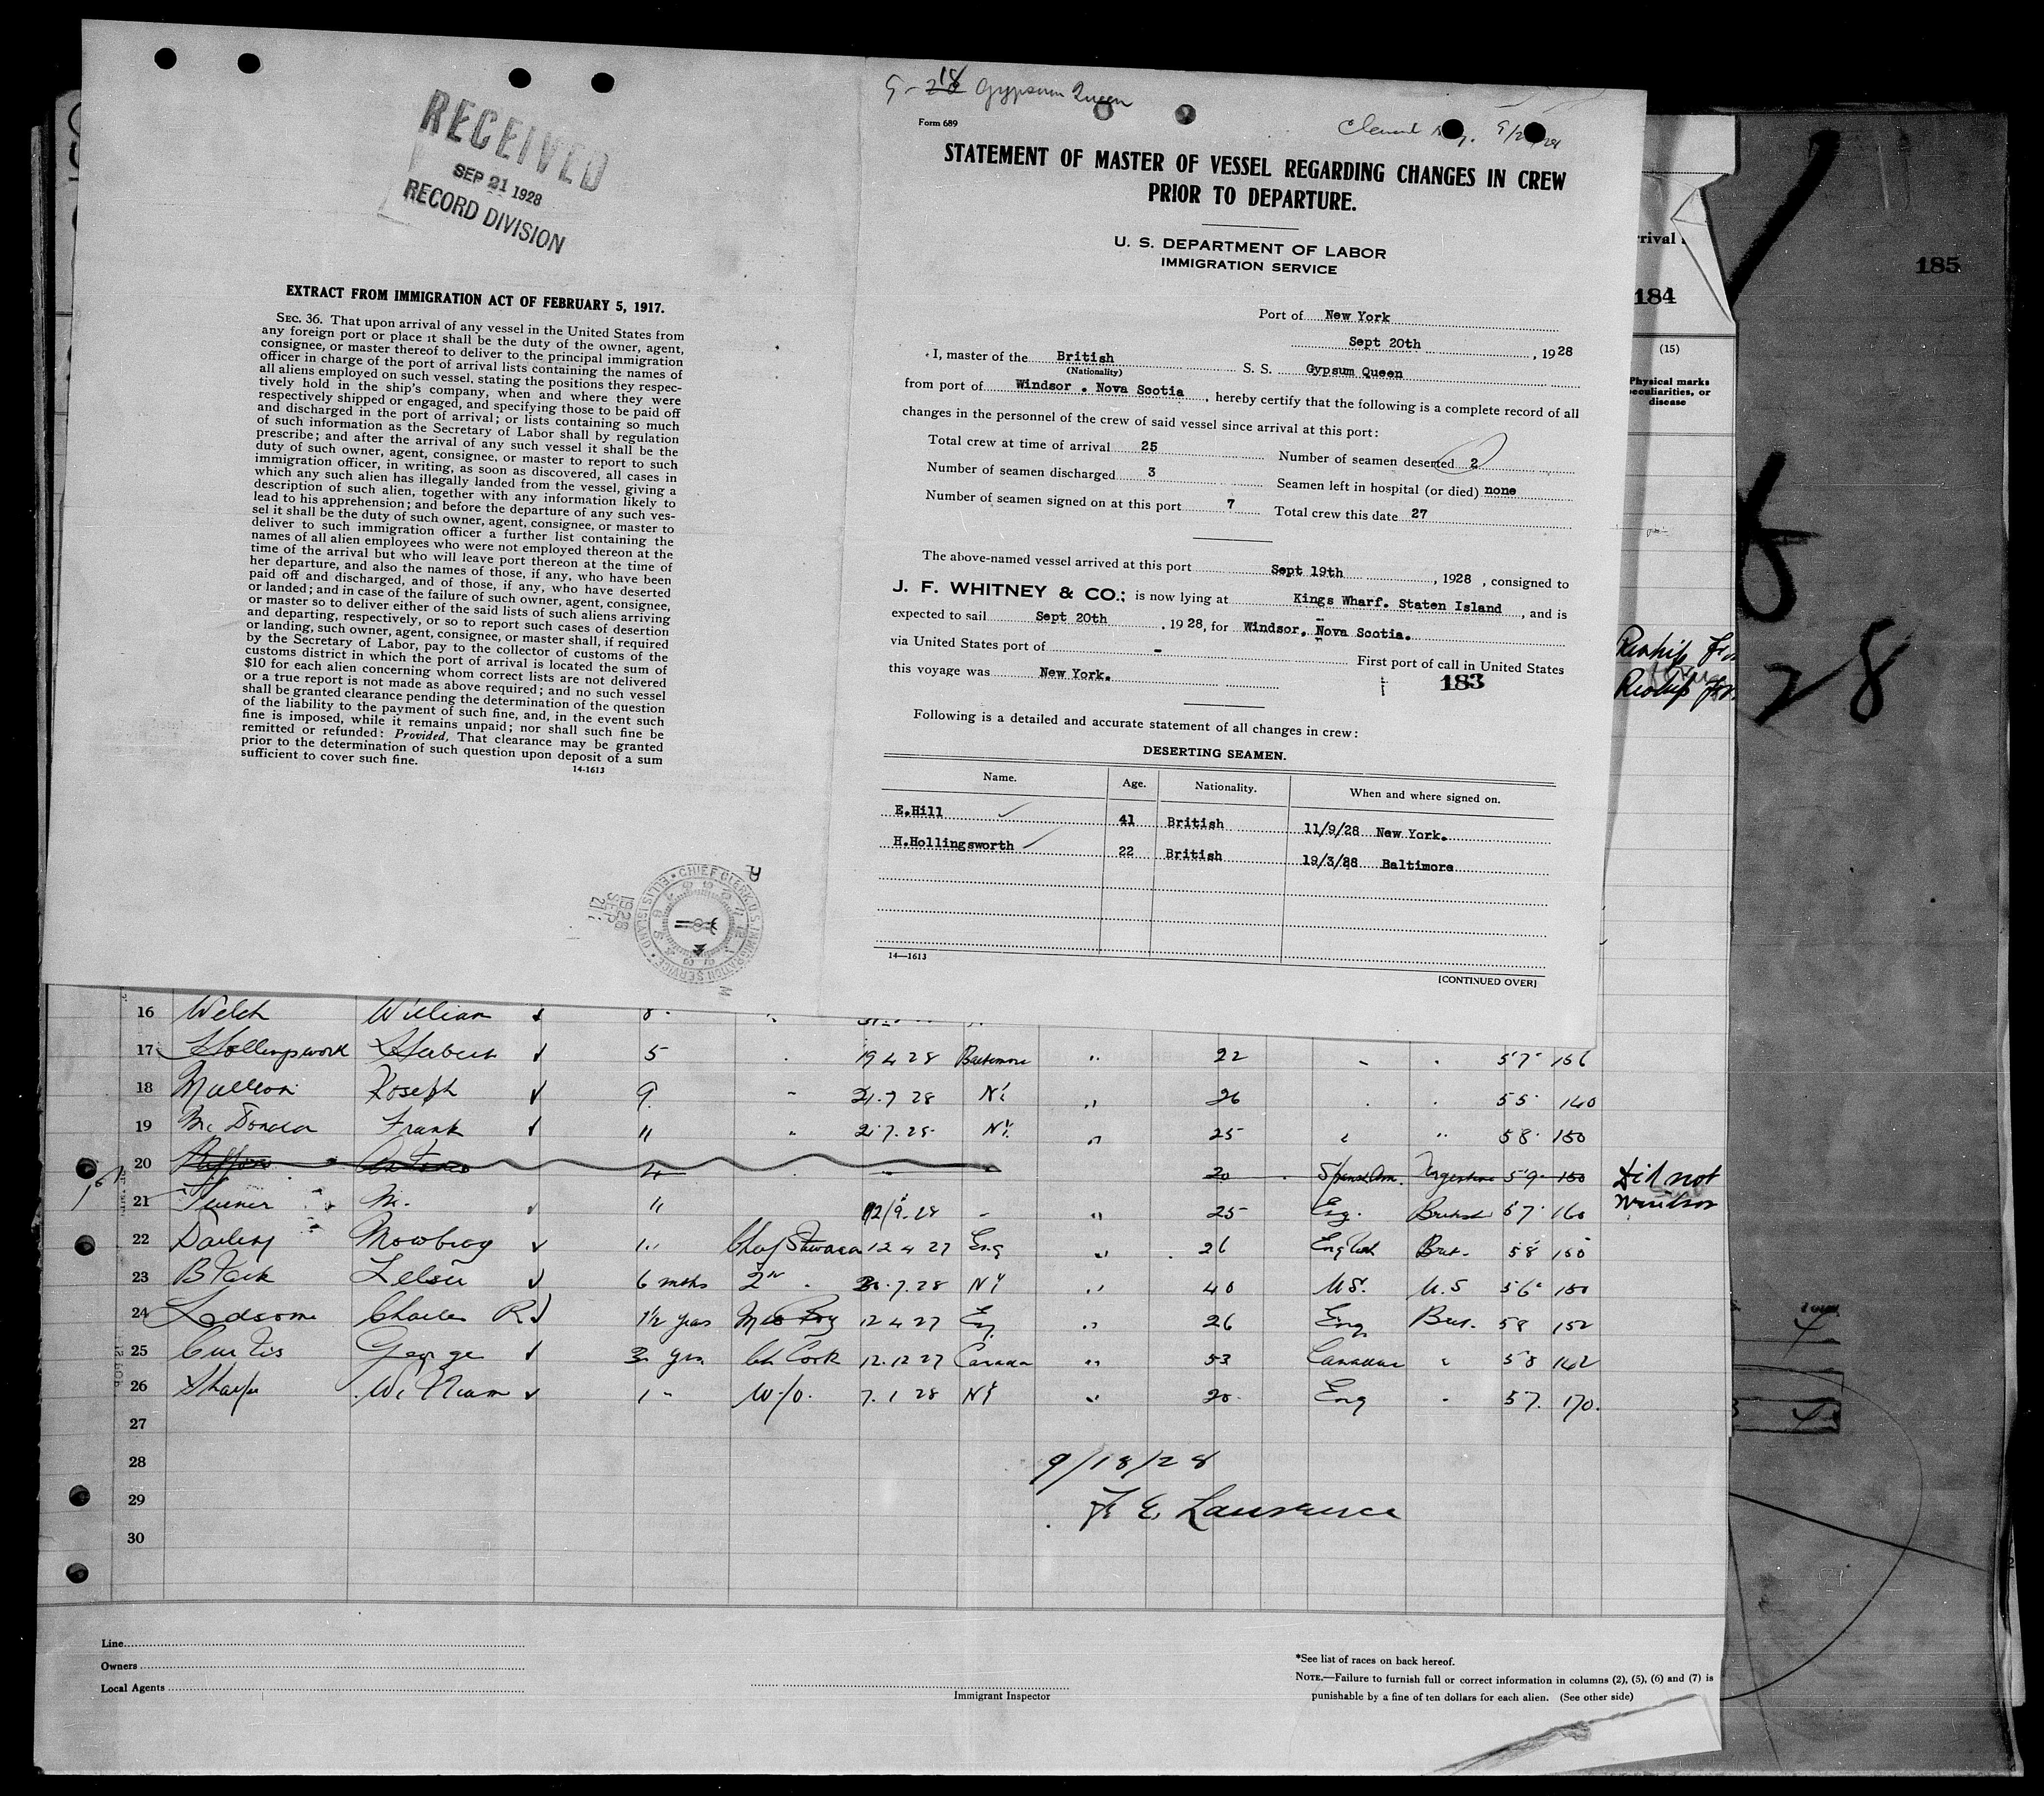 RECEIVED
SEP 21 1928
RECORD DIVISION
EXTRACT FROM IMMIGRATION ACT OF FEBRUARY 5, 1917.
SEC. 36. That upon arrival of any vessel in the United States from
any foreign port or place it shall be the duty of the owner, agent,
consignee, or master thereof to deliver to the principal immigration
officer in charge of the port of arrival lists containing the names of
all aliens employed on such vessel, stating the positions they respec-
tively hold in the ship's company, when and where they were
respectively shipped or engaged, and specifying those to be paid off
and discharged in the port of arrival; or lists containing so much
of such information as the Secretary of Labor shall by regulation
prescribe; and after the arrival of any such vessel it shall be the
duty of such owner, agent, consignee, or master to report to such
immigration officer, in writing, as soon as discovered, all cases in
which any such alien has illegally landed from the vessel, giving a
description of such alien, together with any information likely to
lead to his apprehension; and before the departure of any such ves-
sel it shall be the duty of such owner, agent, consignee, or master to
deliver to such immigration officer a further list containing the
names of all alien employees who were not employed thereon at the
time of the arrival but who will leave port thereon at the time of
her departure, and also the names of those, if any, who have been
paid off and discharged, and of those, if any, who have deserted
or landed; and in case of the failure of such owner, agent, consignee,
or master so to deliver either of the said lists of such aliens arriving
and departing, respectively, or so to report such cases of desertion
or landing, such owner, agent, consignee, or master shall, if required
by the Secretary of Labor, pay to the collector of customs of the
customs district in which the port of arrival is located the sum of
$10 for each alien concerning whom correct lists are not delivered
or a true report is not made as above required; and no such vessel
shall be granted clearance pending the determination of the question
of the liability to the payment of such fine, and, in the event such
fine is imposed, while it remains unpaid; nor shall such fine be
remitted or refunded: Provided, That clearance may be granted
prior to the determination of such question upon deposit of a sum
sufficient to cover such fine.
14-1613
CHIEF CLERK U.S. IMMIGRATION SERVICE ELLIS ISLAND
1928 SEP 21
Gypsum Queen
Form 689
STATEMENT OF MASTER OF VESSEL REGARDING CHANGES IN CREW
PRIOR TO DEPARTURE.
U. S. DEPARTMENT OF LABOR
IMMIGRATION SERVICE
Port of New York
Sept 20th, 1928
I, master of the British S. S. Gypsum Queen
(Nationality)
from port of Windsor . Nova Scotia, hereby certify that the following is a complete record of all
changes in the personnel of the crew of said vessel since arrival at this port:
Total crew at time of arrival 25 Number of seamen deserted 2
Number of seamen discharged 3 Seamen left in hospital (or died) none
Number of seamen signed on at this port 7 Total crew this date 27
The above-named vessel arrived at this port Sept 19th, 1928, consigned to
J. F. WHITNEY & CO.; is now lying at Kings Wharf. Staten Island, and is
expected to sail Sept 20th, 1928, for Windsor. Nova Scotia.
via United States port of - First port of call in United States
this voyage was New York. 183
Following is a detailed and accurate statement of all changes in crew:
DESERTING SEAMEN.
Name. Age. Nationality. When and where signed on.
E.Hill 41 British 11/9/28 New York.
H.Hollingsworth 22 British 19/3/28 Baltimore
14—1613
[CONTINUED OVER]
rrival
185
184
(15)
Physical marks
peculiarities, or
disease
28
16 Welch William 8
17 Hollingswork Herbert 5 19 4 28 Baltimore " 22 57 156
18 Mullon Joseph 9 21.7 28 NY " 26 55 140
19 Frank 11 21.7.28 NY " 25 58 150
20 4 20 Argentine 59 150 Did not
21 Turner M. 11 12/9.28 " 25 Eng. British 57 160 Windsor
22 Mowbray Chief Steward 12 4 27 Eng " 26 English Brit. 58 150
23 Black 6 mths 2nd .7.28 NY " 40 U.S. U.S 56 150
24 Ledsome Charles R 1½ years Mess Boy 12 4 27 Eng " 26 Eng Brit. 58 152
25 Curtis George 3 yrs Ch Cook 12.12 27 Canada " 53 Canadian " 58 162
26 Sharpe William 1 " W/o. 7.1 28 NY " 20 Eng " 57 170.
27
28 9/18/28
29 F. E. Lawrence
30
Line
Owners
Local Agents
Immigrant Inspector
*See list of races on back hereof.
NOTE.—Failure to furnish full or correct information in columns (2), (5), (6) and (7) is
punishable by a fine of ten dollars for each alien. (See other side)